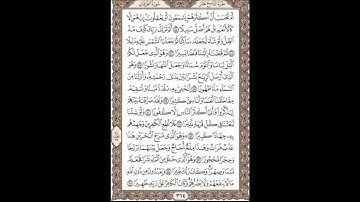 الجزء التاسع عشر سورة الفرقان
أَمْ تَحْسَبُ أَنَّ أَكْثَرَهُمْ يَسْمَعُونَ أَوْ يَعْقِلُونَ إِنْ هُمْ إِلَّا
كَالْأَنْعَٰمِ بَلْ هُمْ أَضَلُّ سَبِيلًا ٤٤ أَلَمْ تَرَ إِلَىٰ رَبِّكَ كَيْفَ مَدَّ
الظِّلَّ وَلَوْ شَآءَ لَجَعَلَهُ سَاكِنًا ثُمَّ جَعَلْنَا الشَّمْسَ عَلَيْهِ دَلِيلًا
٤٥ ثُمَّ قَبَضْنَٰهُ إِلَيْنَا قَبْضًا يَسِيرًا ٤٦ وَهُوَ الَّذِي جَعَلَ لَكُمُ
الَّيْلَ لِبَاسًا وَالنَّوْمَ سُبَاتًا وَجَعَلَ النَّهَارَ نُشُورًا ٤٧ وَهُوَ
الَّذِي أَرْسَلَ الرِّيَٰحَ بُشْرًا بَيْنَ يَدَيْ رَحْمَتِهِ وَأَنزَلْنَا مِنَ
السَّمَآءِ مَآءً طَهُورًا ٤٨ لِّنُحْۦِيَ بِهِ بَلْدَةً مَّيْتًا وَنُسْقِيَهُ مِمَّا
خَلَقْنَآ أَنْعَٰمًا وَأَنَاسِيَّ كَثِيرًا ٤٩ وَلَقَدْ صَرَّفْنَٰهُ بَيْنَهُمْ
لِيَذَّكَّرُوا فَأَبَىٰ أَكْثَرُ النَّاسِ إِلَّا كُفُورًا ٥٠ وَلَوْ شِئْنَا
لَبَعَثْنَا فِي كُلِّ قَرْيَةٍ نَّذِيرًا ٥١ فَلَا تُطِعِ الْكَٰفِرِينَ وَجَٰهِدْهُم
بِهِ جِهَادًا كَبِيرًا ٥٢ وَهُوَ الَّذِي مَرَجَ الْبَحْرَيْنِ هَٰذَا
عَذْبٌ فُرَاتٌ وَهَٰذَا مِلْحٌ أُجَاجٌ وَجَعَلَ بَيْنَهُمَا بَرْزَخًا
وَحِجْرًا مَّحْجُورًا ٥٣ وَهُوَ الَّذِي خَلَقَ مِنَ الْمَآءِ بَشَرًا فَجَعَلَهُ
نَسَبًا وَصِهْرًا وَكَانَ رَبُّكَ قَدِيرًا ٥٤ وَيَعْبُدُونَ مِن دُونِ اللَّهِ
مَا لَا يَنفَعُهُمْ وَلَا يَضُرُّهُمْ وَكَانَ الْكَافِرُ عَلَىٰ رَبِّهِ ظَهِيرًا ٥٥
٣٦٤